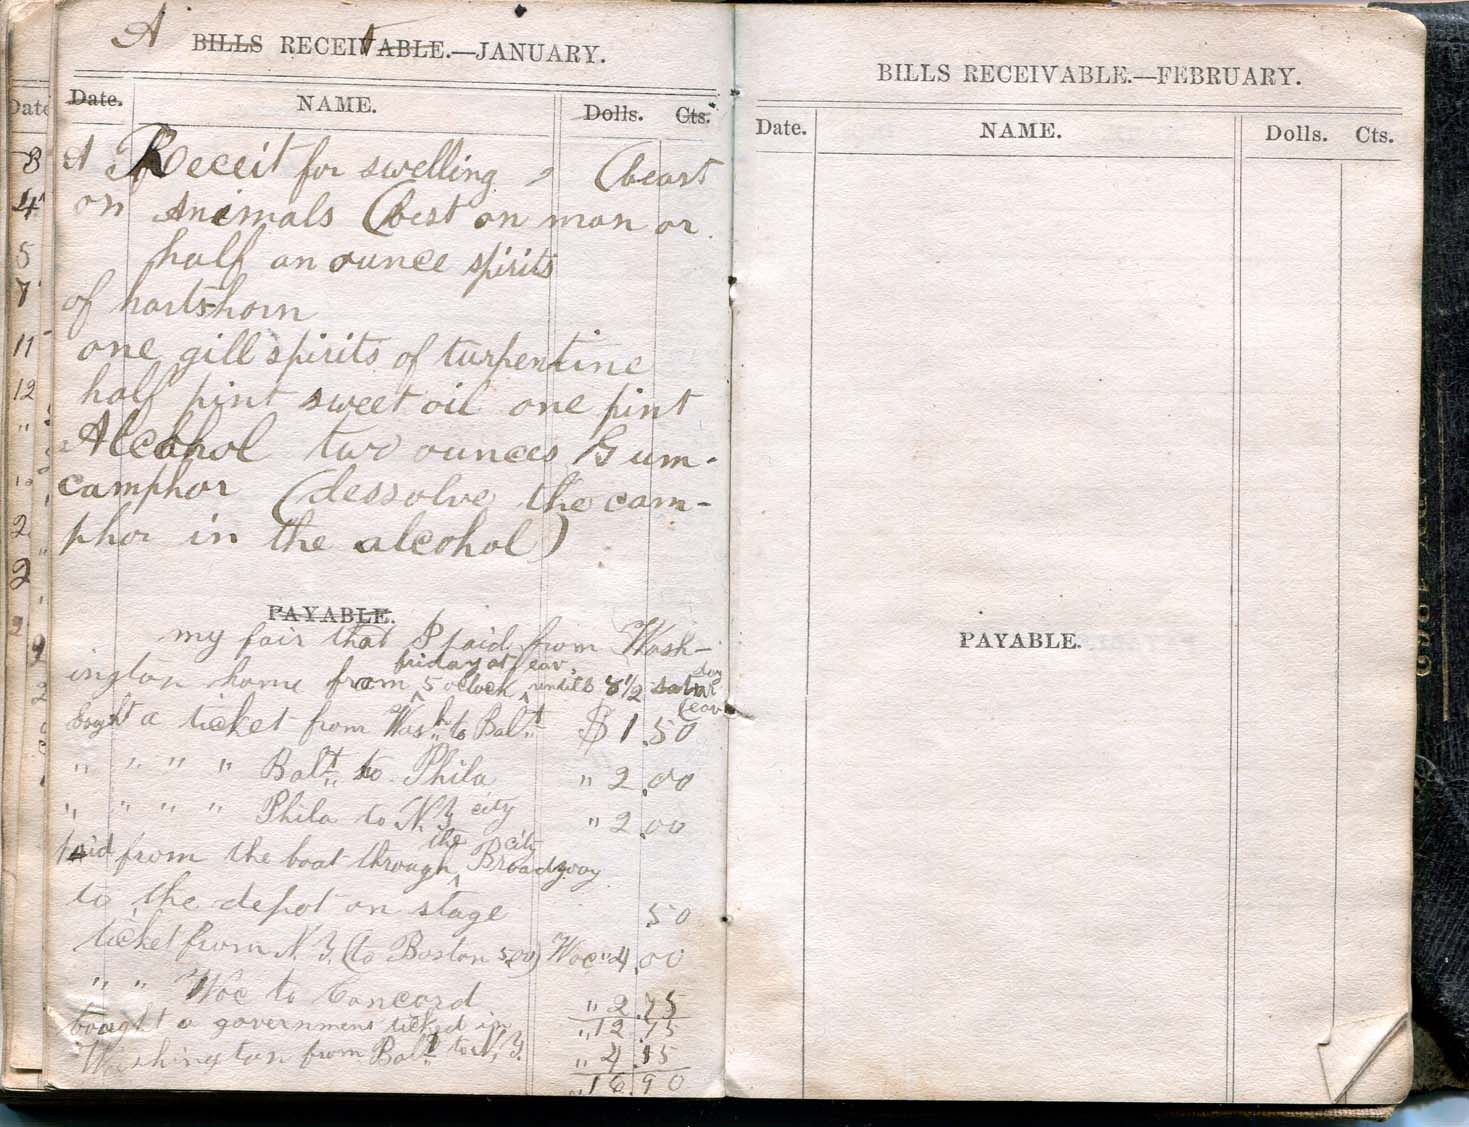 A BILLS RECEIVABLE.—JANUARY.
Date. NAME. Dolls. Cts.
A Receit for swelling (beast
on Animals (best on man or
half an ounce spirits
of hartshorn
one gill spirits of turpentine
half pint sweet oil one pint
Alcohol two ounces Gum-
camphor (dessolve the cam-
phor in the alcohol)
PAYABLE.
my fair that I paid from Wash-
friday at eav, day
ington home from 5 oclock untill 8 1/2 satur
eav
bought a ticket from Wash to Balt $1.50
" " " " Balt to Phila " 2.00
" " " " Phila to N.Y. city " 2.00
the city
paid from the boat through Broadway
to the depot on stage 50
ticket from N.Y. (to Boston 5,00) Woc " 4.00
" " Woc to Concord " 2.75
" 12.75
bought a government ticked in
Washington from Balt to N.Y. " 4.15
" 16.90
BILLS RECEIVABLE.—FEBRUARY.
Date. NAME. Dolls. Cts.
PAYABLE.
Date
8
4
5
7
11
12
"
2
2
2
9
2